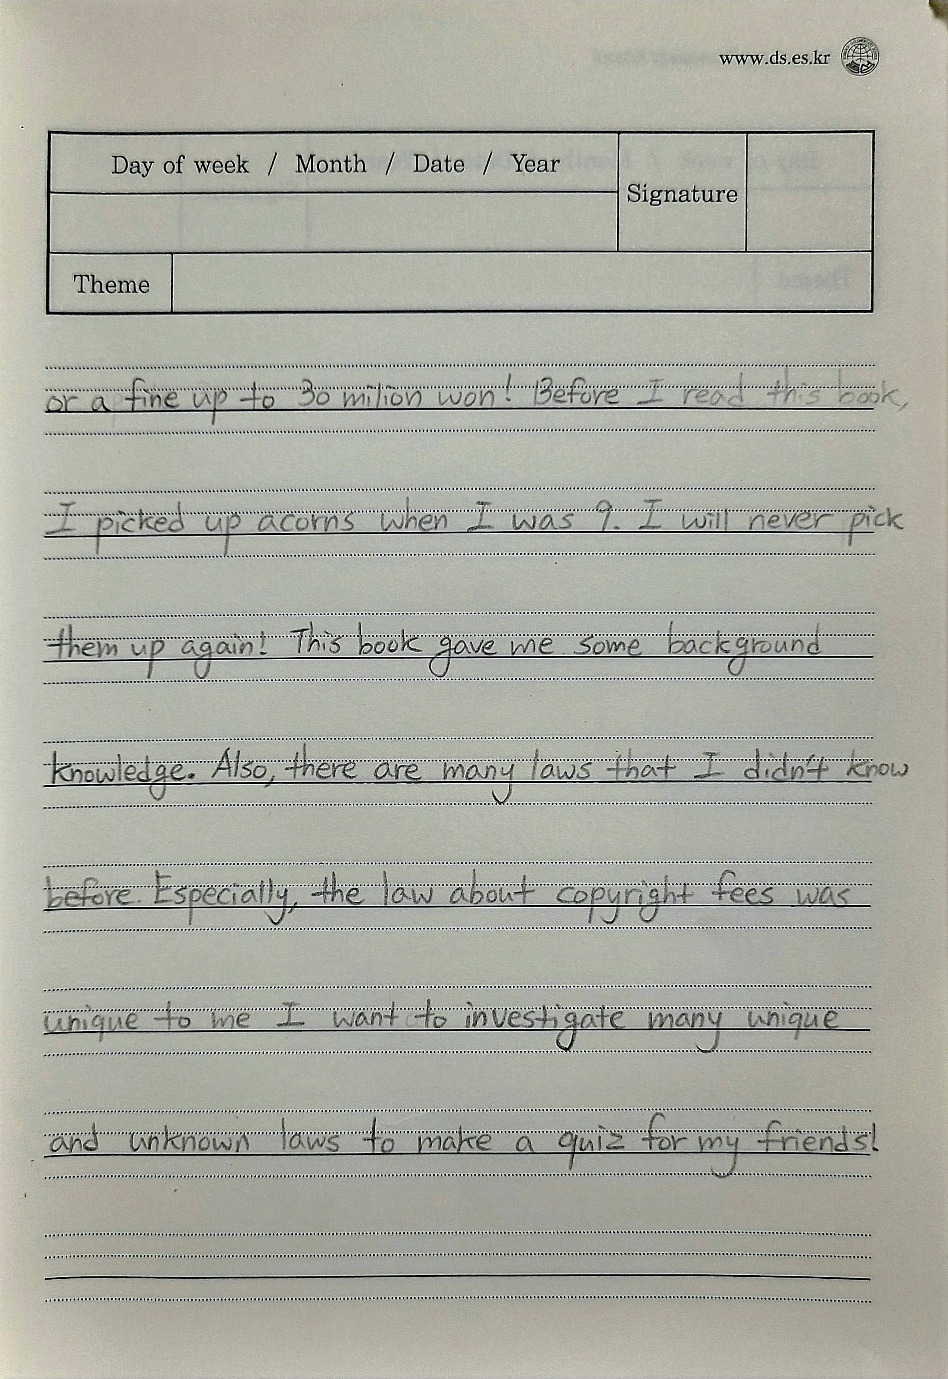 www.ds.es.kr
Day of week / Month / Date / Year
Signature
Theme
or a fine up to 30 milion won! Before I read this book,
I picked up acorns when I was 9. I will never pick
them up again! This book gave me some background
knowledge. Also, there are many laws that I didn't know
before. Especially, the law about copyright fees was
unique to me I want to investigate many unique
and unknown laws to make a quiz for my friends!